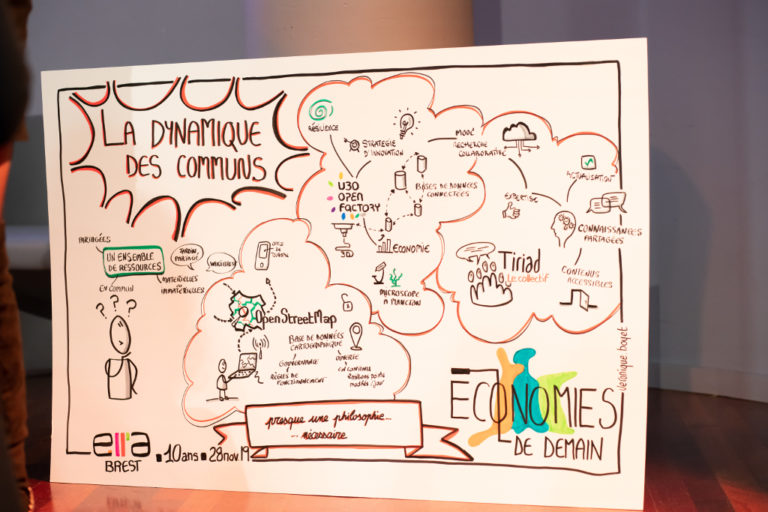 LA DYNAMIQUE
DES COMMUNS
PARTAGÉES
UN ENSEMBLE
DE RESSOURCES
EN COMMUN
JARDIN
PARTAGÉ
WIKIPÉDIA
MATÉRIELLES
OU
IMMATÉRIELLES
? ? ?
RÉSILIENCE
STRATÉGIE
D'INNOVATION
U3O
OPEN
FACTORY
3D
BASES DE DONNÉES
CONNECTÉES
ÉCONOMIE
MICROSCOPE
À PLANCTON
MODE
RECHERCHE
COLLABORATIVE
EXPERTISE
ACTUALISATION
CONNAISSANCES
PARTAGÉES
CONTENUS
ACCESSIBLES
Tiriad
Le collectif
OpenStreetMap
BASE DE DONNÉES
CARTOGRAPHIQUE
GOUVERNANCE
RÈGLES DE
FONCTIONNEMENT
OUVERTE
EN CONTINU
presque une philosophie...
... nécessaire
ECONOMIES
DE DEMAIN
véronique boyet
ella
BREST
10 ans
28 nov 19